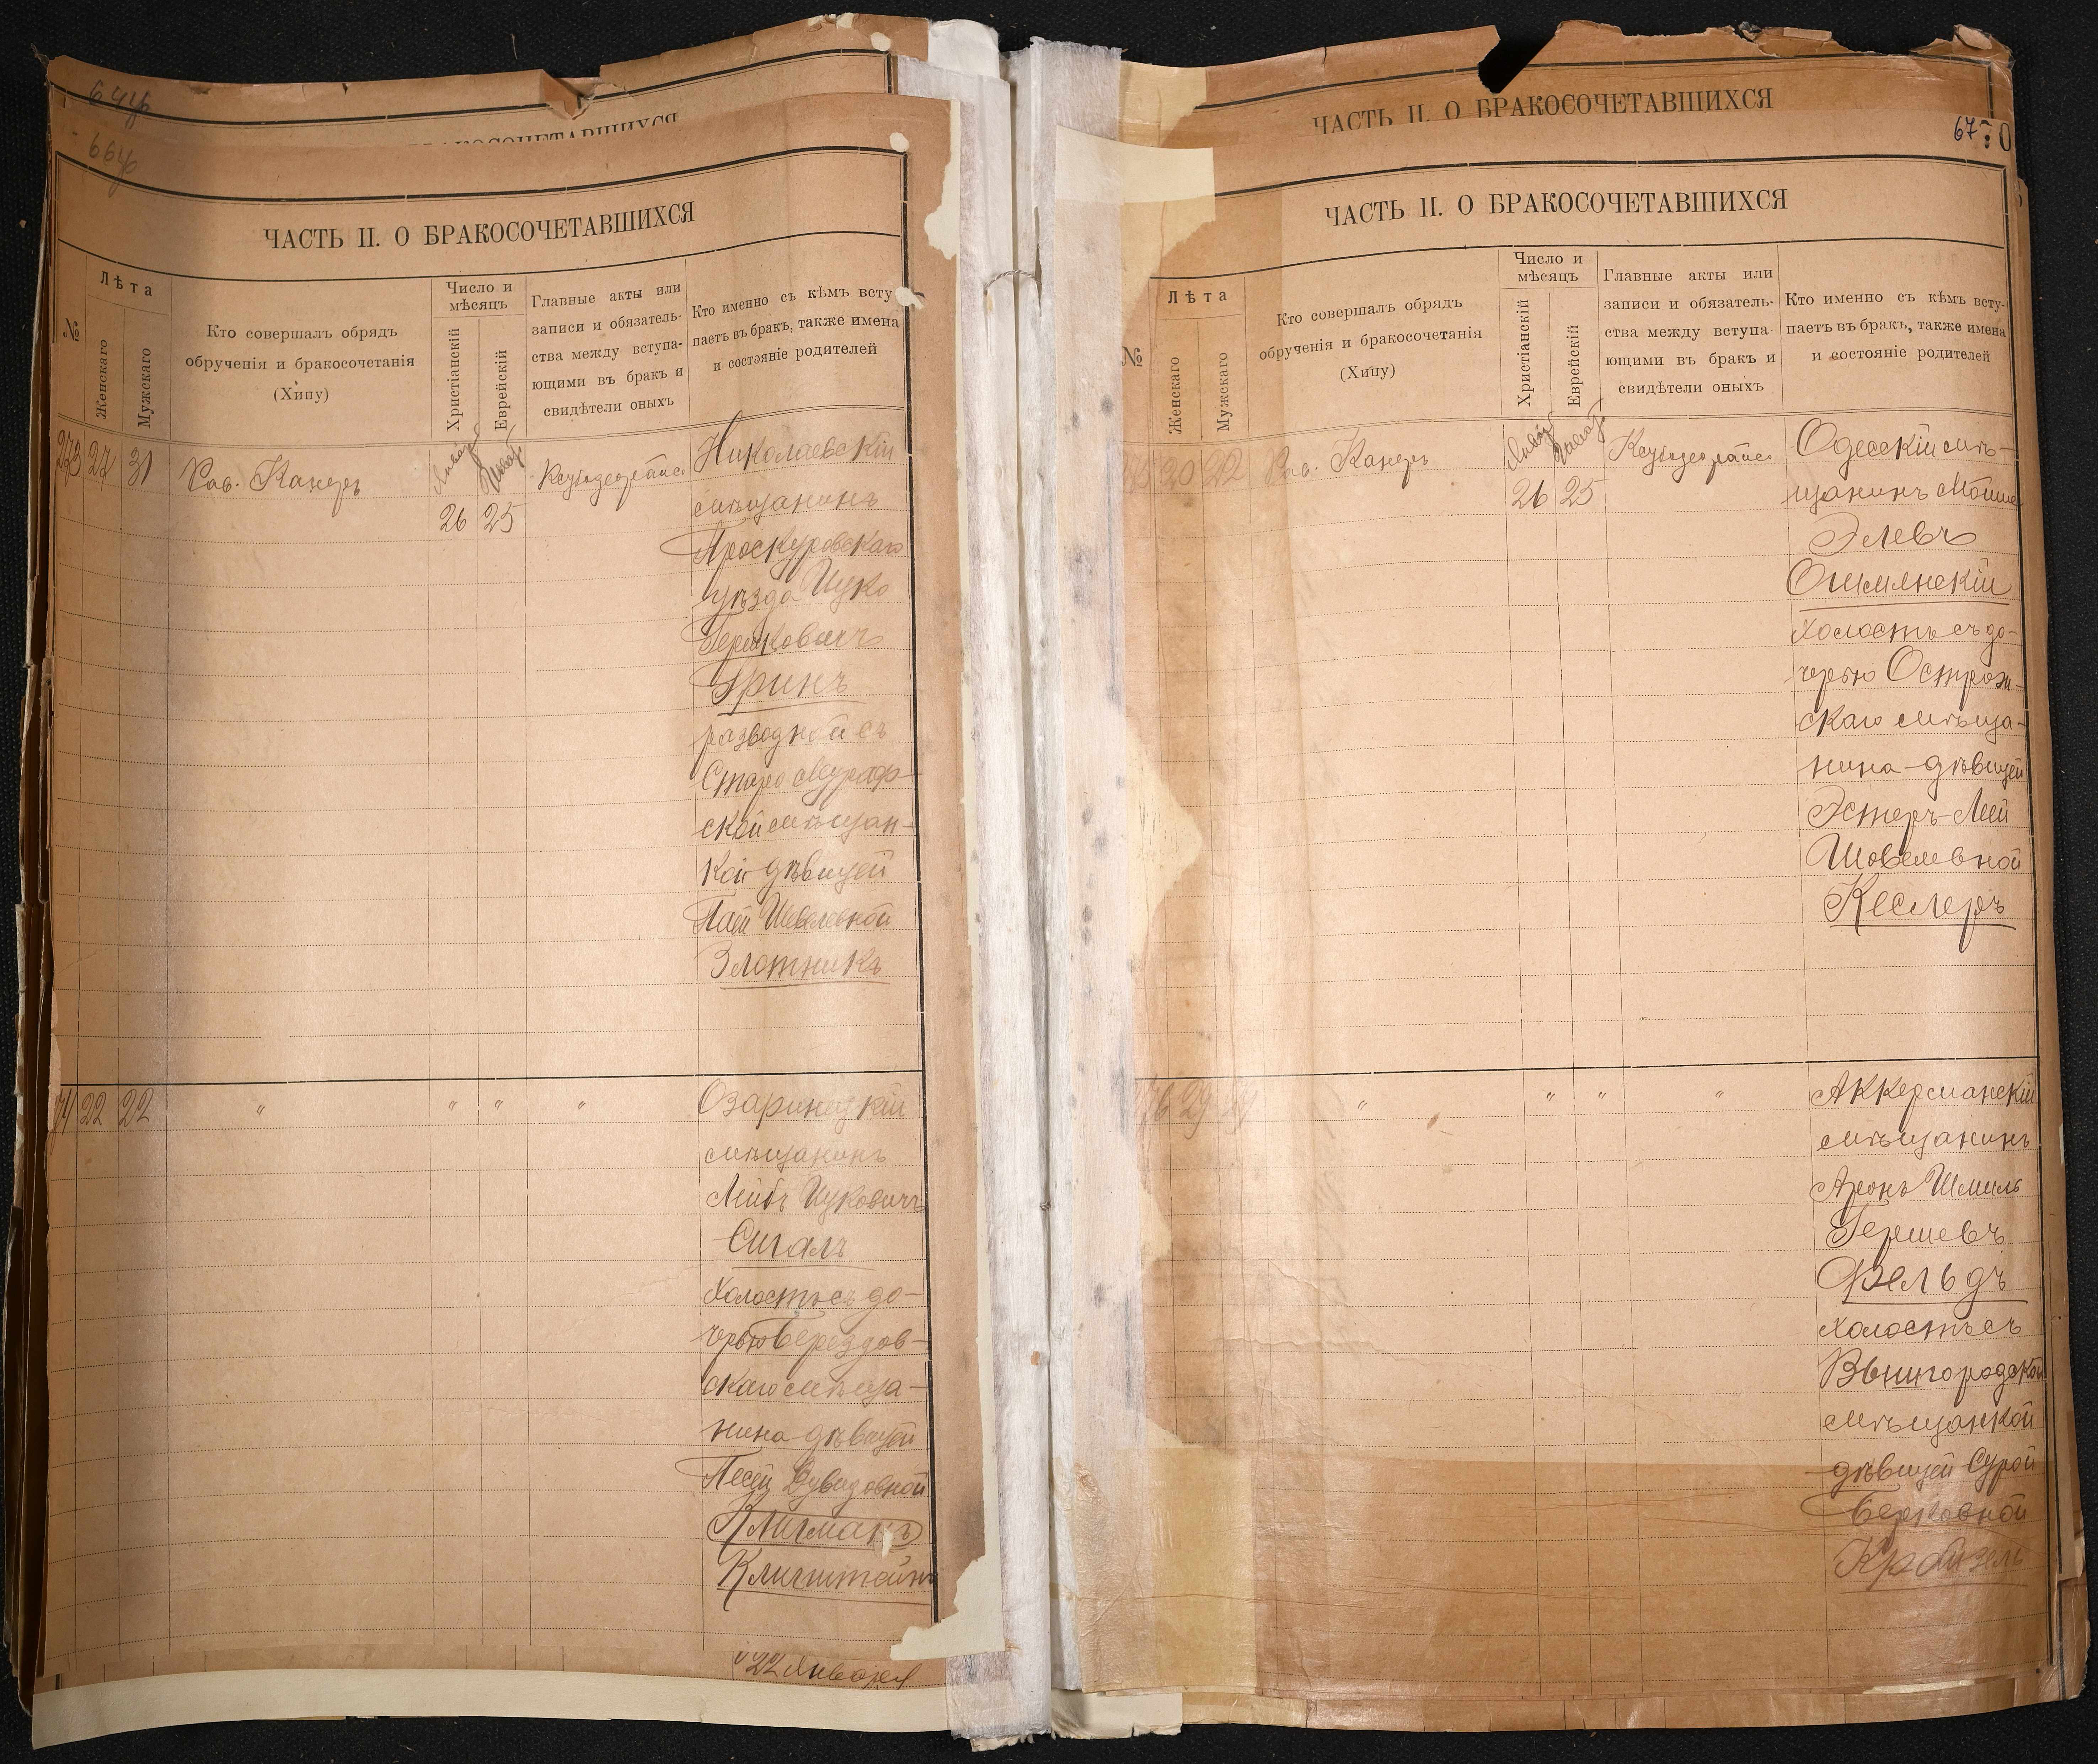 64 об
66 об
ЧАСТЬ II. О БРАКОСОЧЕТАВШИХСЯ
№
Лѣта
Женскаго
Мужскаго
Кто совершалъ обрядъ
обрученія и бракосочетанія
(Хипу)
Число и
мѣсяцъ
Христіанскій
Еврейскій
Главные акты или
записи и обязатель-
ства между вступа-
ющими въ бракъ и
свидѣтели оныхъ
Кто именно съ кѣмъ всту-
паетъ въ бракъ, также имена
и состояніе родителей
273 27 31 Рав. Канеръ
Январ Шват
26 25
Николаевскій
мѣщанинъ
Проскуровскаго
уѣзда Ицко
Гершковичъ
Гринъ
разводной съ
Старо Мураф-
ской мѣщан-
кой дѣвицей
Шевелевной
Злотникъ
74 22 22 " " " "
Озаринецкій
мѣщанинъ
Лейбъ Ицковичъ
Сигалъ
Холостъ съ до-
черью Берездов-
скаго мѣща-
нина дѣвицей
Песей Дувидовной
Клигманъ
Клигштейнъ
22 Января
ЧАСТЬ II. О БРАКОСОЧЕТАВШИХСЯ
67
70
ЧАСТЬ II. О БРАКОСОЧЕТАВШИХСЯ
№
Лѣта
Женскаго
Мужскаго
Кто совершалъ обрядъ
обрученія и бракосочетанія
(Хипу)
Число и
мѣсяцъ
Христіанскій
Еврейскій
Главные акты или
записи и обязатель-
ства между вступа-
ющими въ бракъ и
свидѣтели оныхъ
Кто именно съ кѣмъ всту-
паетъ въ бракъ, также имена
и состояніе родителей
20 22 Рав. Канеръ
Январ Шват
26 25
Одесскій мѣ-
щанинъ Мошко
Элевъ
Ошмянскій
Холостъ съ до-
черью Острож-
скаго мѣща-
нина дѣвицей
Эстеръ-Леей
Шовелевной
Кеслеръ
76 29 29 " " " "
Аккерманскій
мѣщанинъ
Аронъ Шмиль
Гершевъ
Фельдъ
холостъ съ
Вышгородской
мѣщанкой
дѣвицей Сурой
Берковной
Крайзель